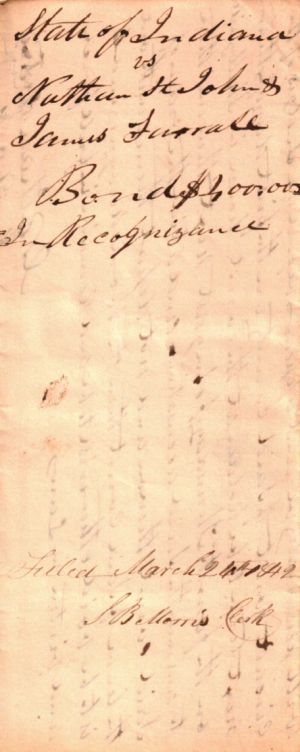 State of Indiana
vs
Nathan St John &
James Farrale
Bond $400.00
In Recognizance
Filed March 24th 1842
S B Morris Clerk